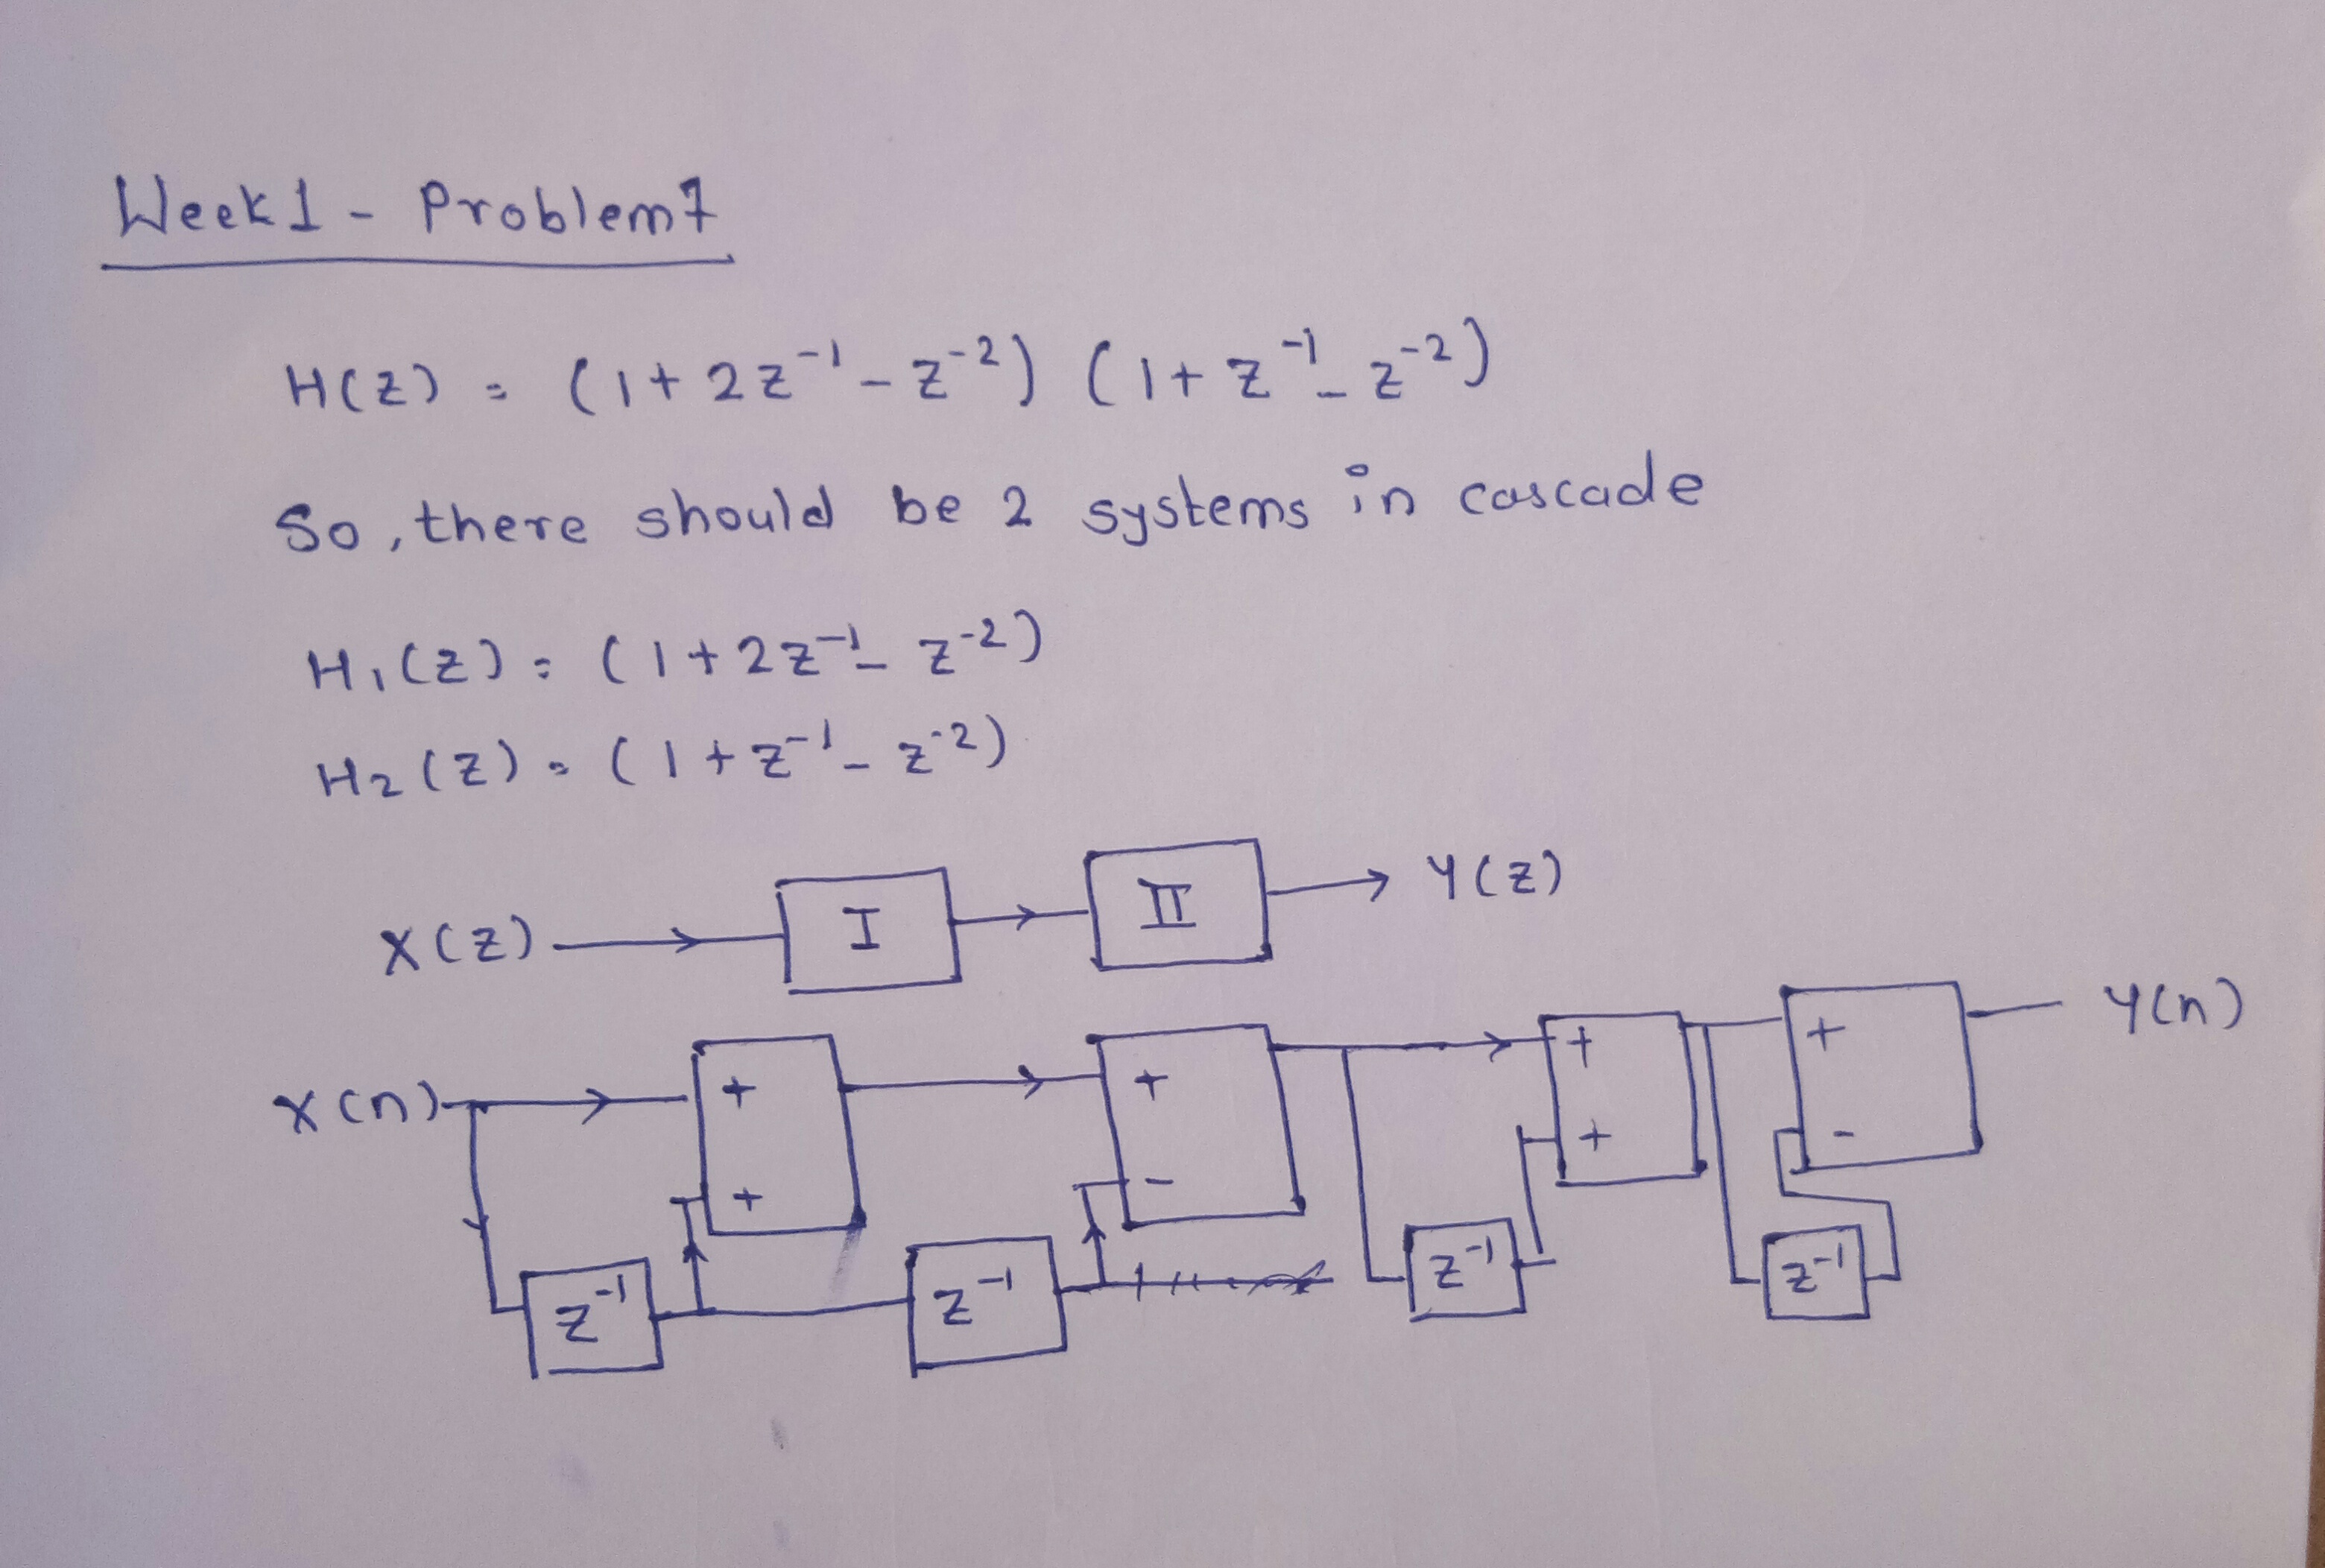 Week1 - Problem7
H(z) = (1+2z⁻¹-z⁻²) (1+z⁻¹-z⁻²)
So, there should be 2 systems in cascade
H₁(z) = (1+2z⁻¹-z⁻²)
H₂(z) = (1+z⁻¹-z⁻²)
X(z) I II Y(z)
X(n) + + + Y(n)
+ - + -
z⁻¹ z⁻¹ z⁻¹ z⁻¹